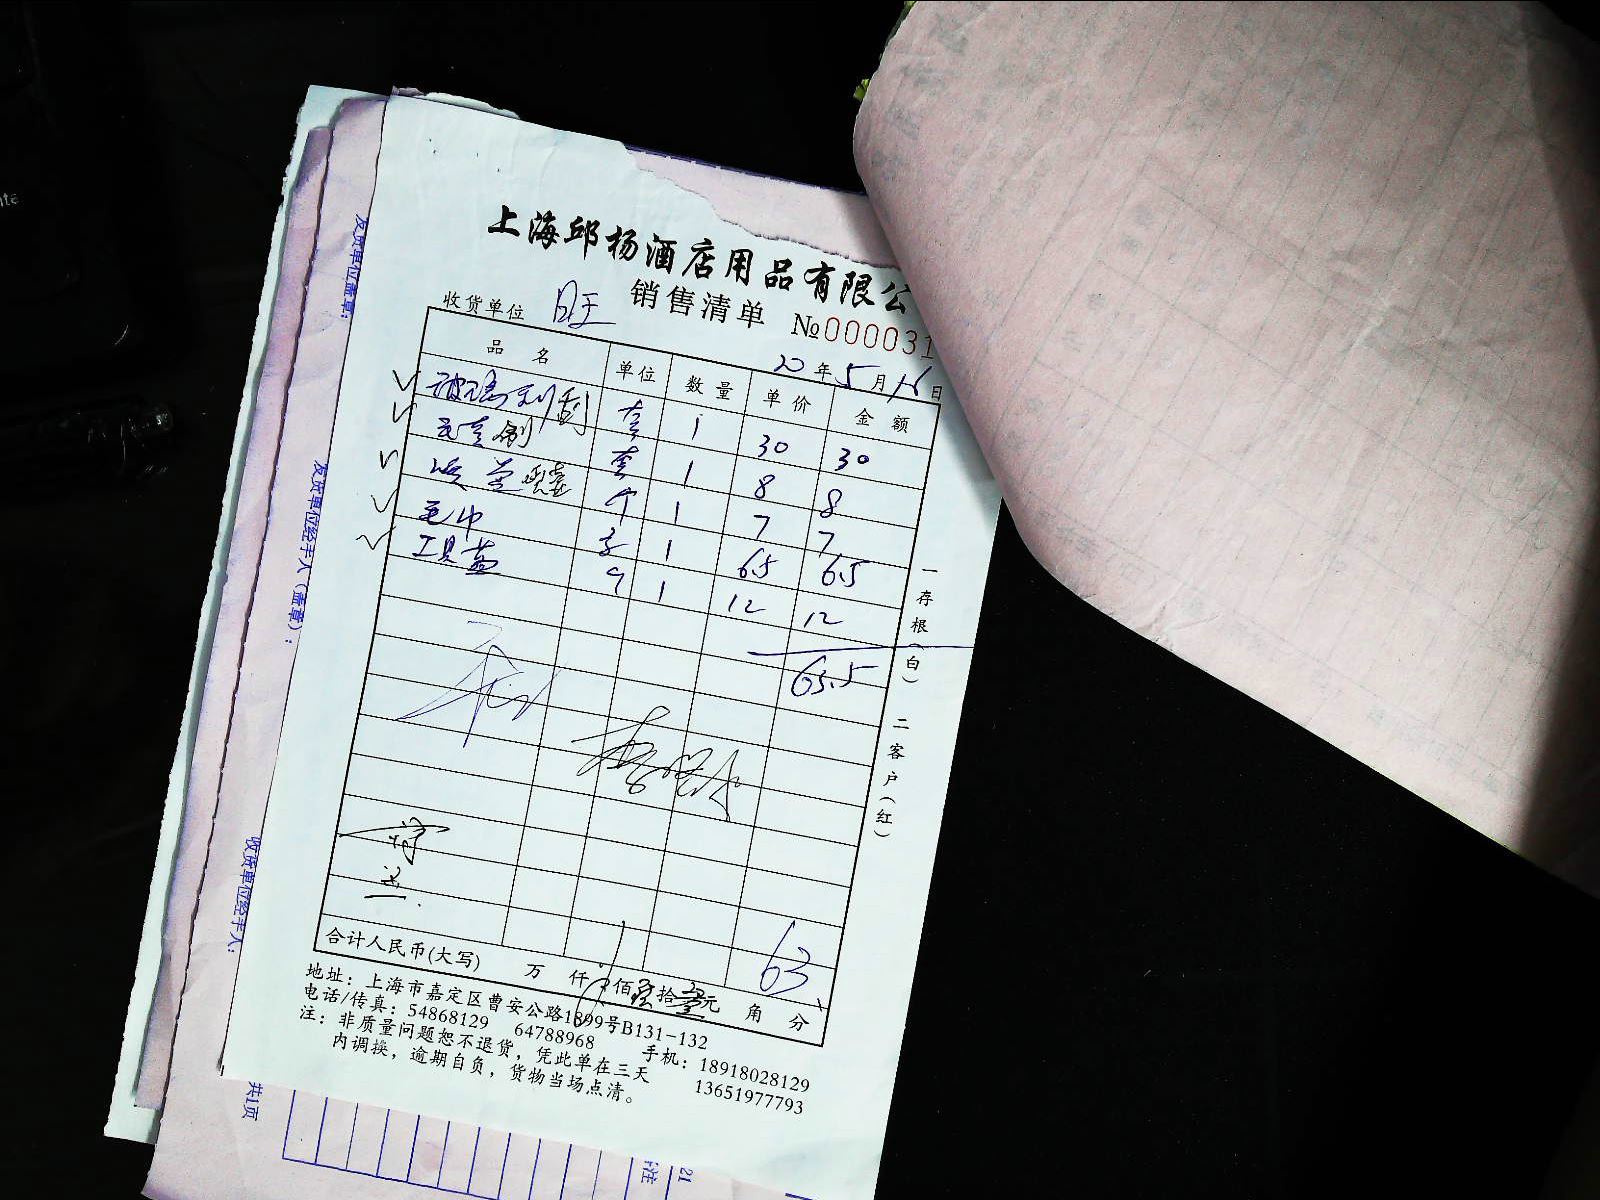 上海邱杨酒店用品有限公
销售清单
收货单位 旺
№000031
20年5月16日
品名 单位 数量 单价 金额
玻璃刮刮 套 1 30 30
套 1 8 8
个 1 7 7
毛巾 条 1 6.5 6.5
工具蓝 个 1 12 12
63.5
63
合计人民币(大写) 万 仟 佰 陆 拾 叁 元 角 分
地址：上海市嘉定区曹安公路1899号B131-132
电话/传真：54868129 64788968 手机：18918028129
13651977793
注：非质量问题恕不退货，凭此单在三天
内调换，逾期自负，货物当场点清。
一存根(白) 二客户(红)
发货单位盖章：
发货单位经手人(盖章)：
收货单位经手人：
共1页